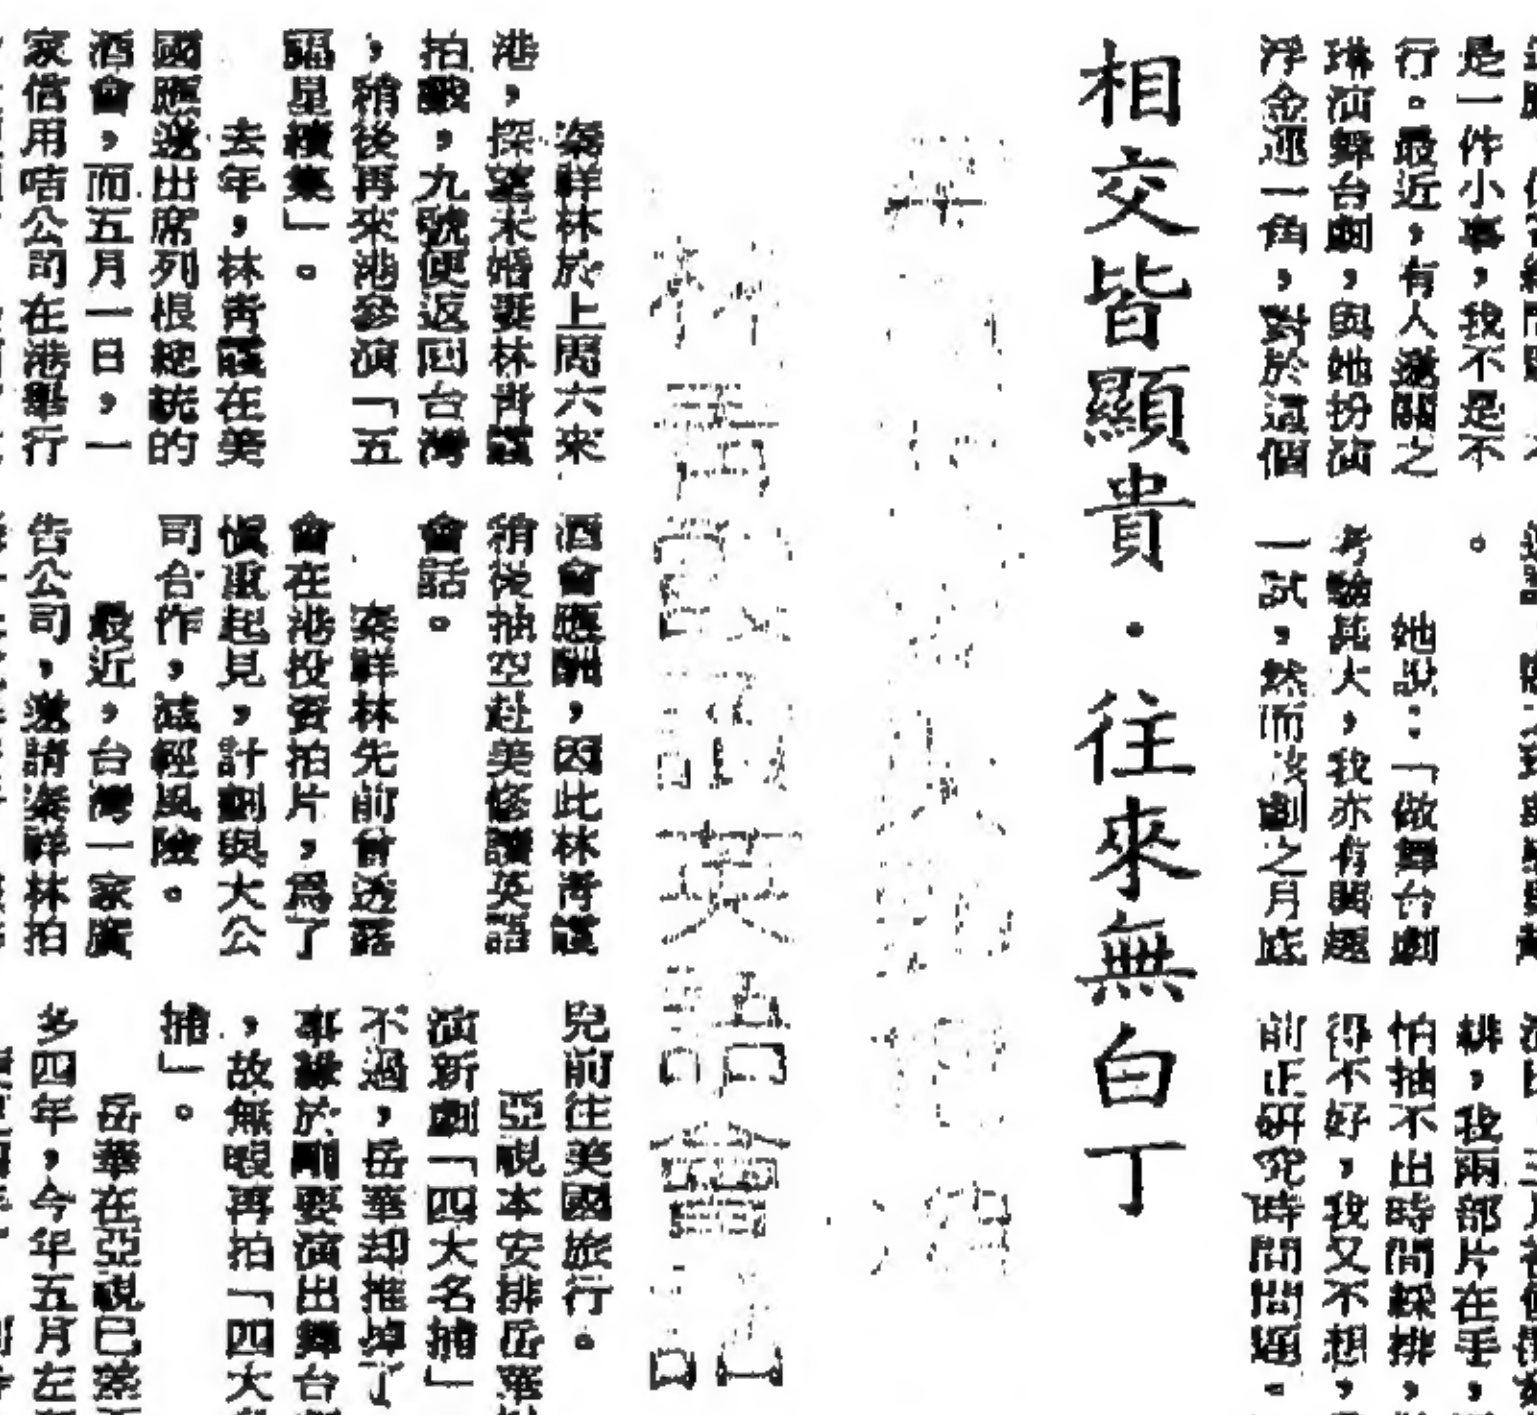 是一件小事，我不是不
行。最近，有人邀關之
琳演舞台劇，與她扮演
一角，對於這個
。
她說：「做舞台劇
考驗甚大，我亦有興趣
一試，然而該劇之月底
排，我兩部片在手，
怕抽不出時間綵排，
得不好，我又不想，
前正研究時間問題。
相交皆顯貴．往來無白丁
林青霞讀英語會話
秦祥林於上周六來
港，探望未婚妻林青霞
拍戲，九號便返回台灣
，稍後再來港參演「五
福星續集」。
去年，林青霞在美
國應邀出席列根總統的
酒會，而五月一日，一
家信用咭公司在港舉行
酒會應酬，因此林青霞
稍後抽空赴美修讀英語
會話。
秦祥林先前曾透露
會在港投資拍片，爲了
慎重起見，計劃與大公
司合作，減輕風險。
最近，台灣一家廣
告公司，邀請秦祥林拍
兒前往美國旅行。
亞視本安排岳華
演新劇「四大名捕」
不過，岳華却推掉了
事緣於剛要演出舞台
，故無暇再拍「四大
捕」。
岳華在亞視已簽
多四年，今年五月左